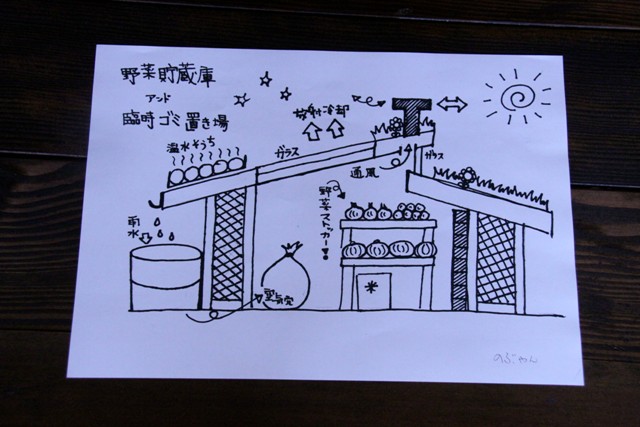 野菜貯蔵庫
アンド
臨時ゴミ置き場
温水そうち
放射冷却
ガラス
通風
ガラス
雨水
野菜ストッカー
米